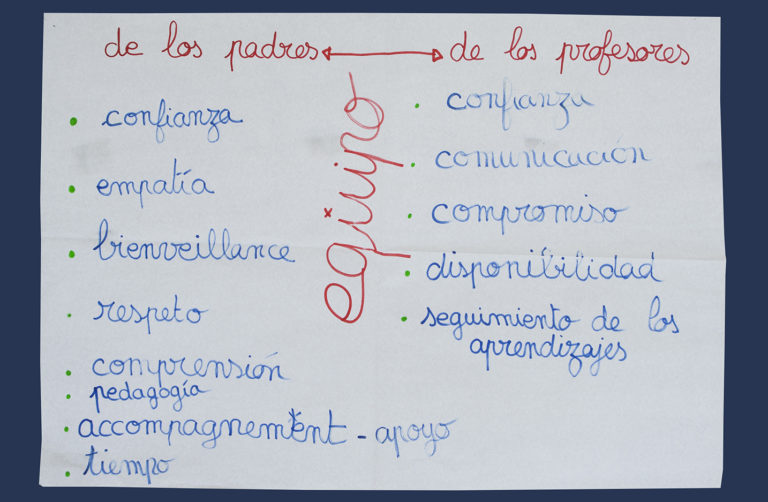 de los padres ↔ de los profesores
equipo
• confianza
• empatía
• bienveillance
• respeto
• comprensión
• pedagogía
• accompagnement - apoyo
• tiempo
• confianza
• comunicación
• compromiso
• disponibilidad
• seguimiento de los
aprendizajes